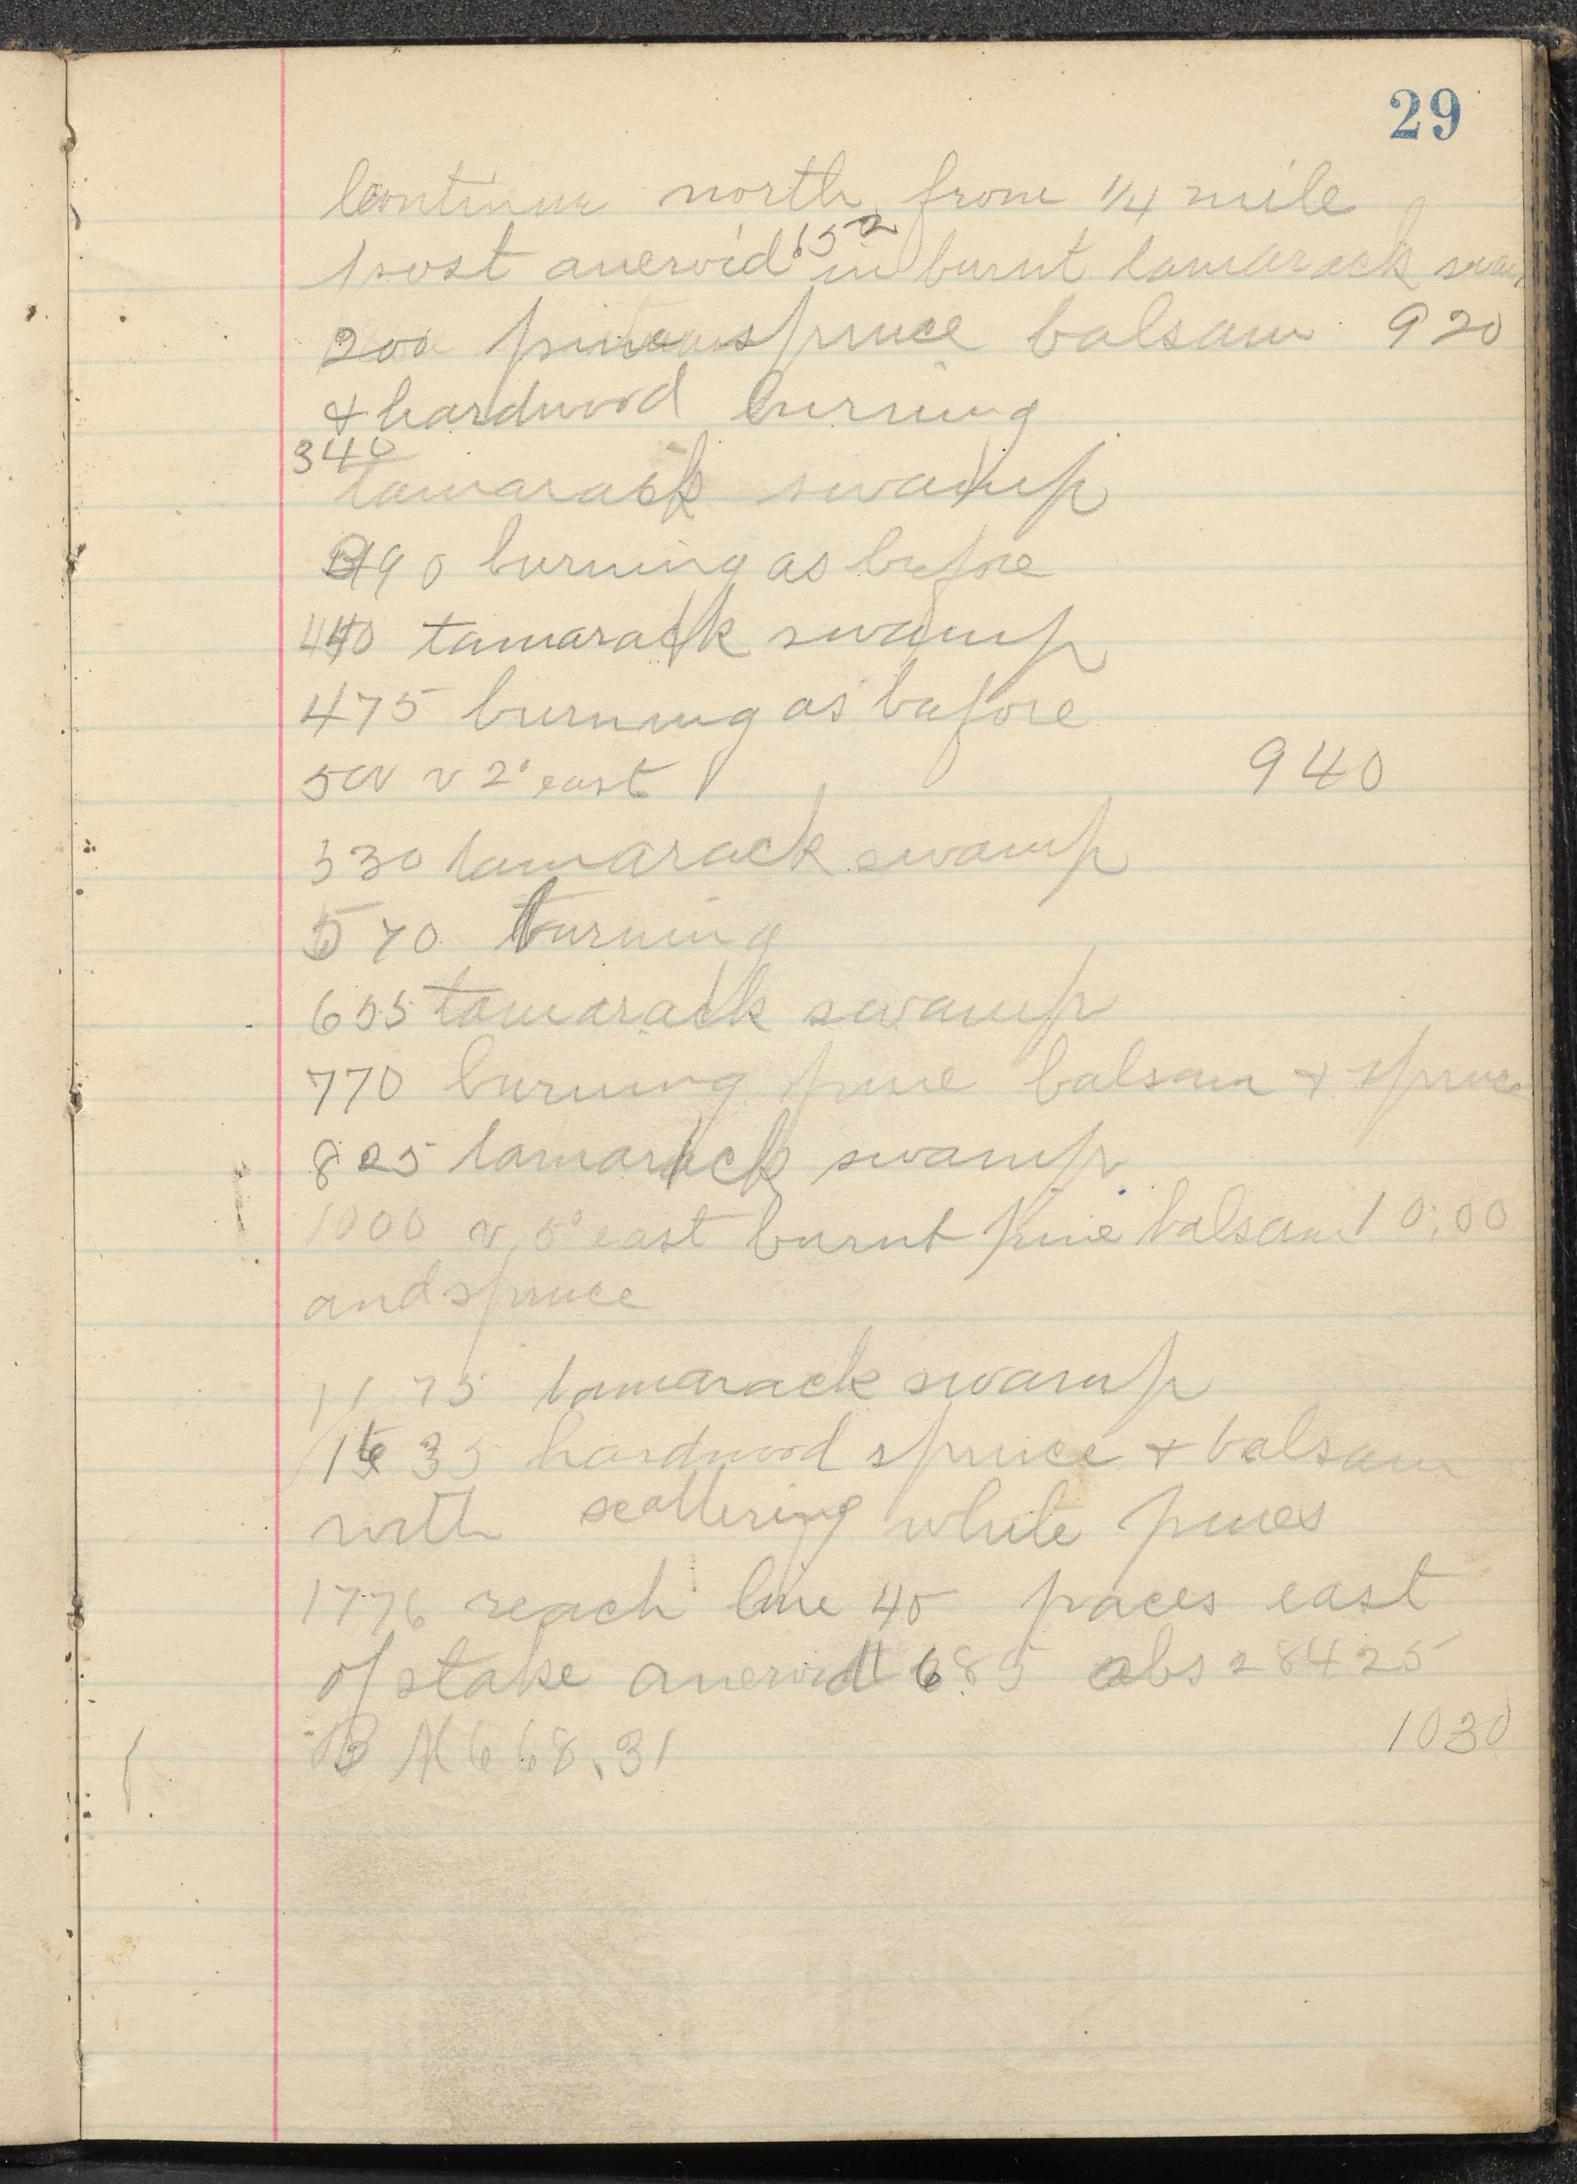 29
Continue north from 1/4 mile
post aneroid 652 in burnt tamarack
200 pine spruce balsam 920
& hardwood burning
340
tamarack swamp
390 burning as before
440 tamarack swamp
475 burning as before
500 v 2° east 940
530 tamarack swamp
570 burning
605 tamarack swamp
770 burning pine balsam & spruce
825 tamarack swamp
1000 v 5° east burnt pine balsam 10:00
and spruce
1175 tamarack swamp
1535 hardwood spruce & balsam
with scattering white pines
1776 reach line 45 paces east
of stake aneroid 685 abs 28425
B M 668.31 1030